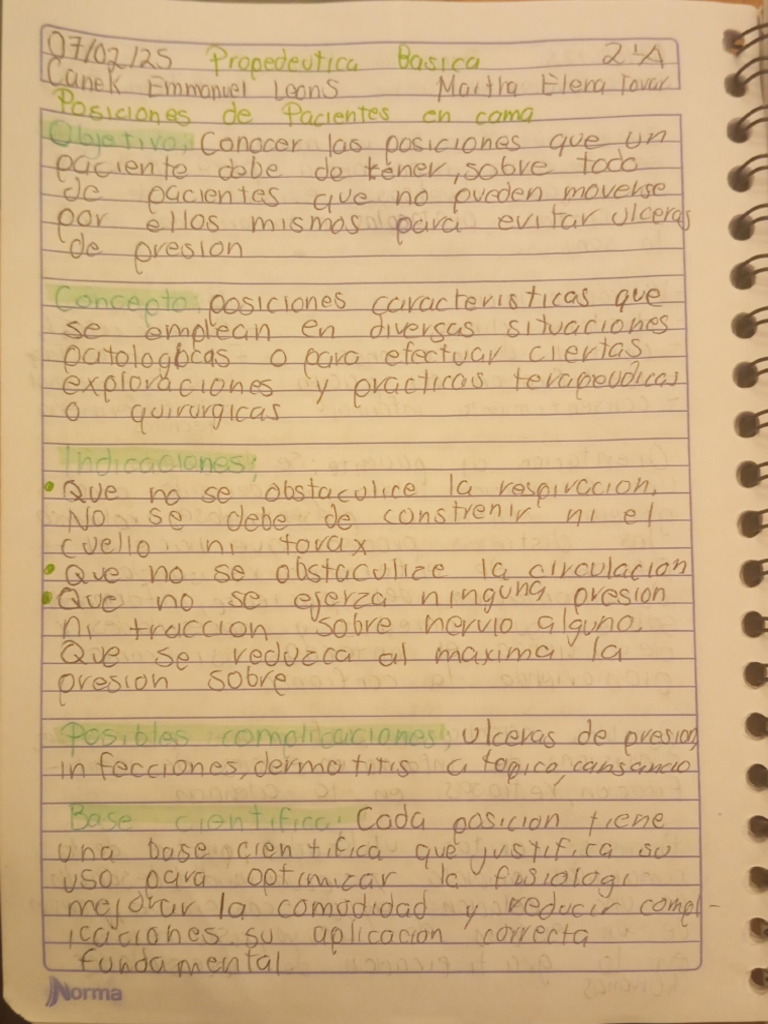 07/02/25 Propedeutica Basica 2ºA
Canek Emmanuel Leon S Maitra Elena Tovar
Posiciones de Pacientes en cama
Objetivo: Conocer las posiciones que un
paciente debe de tener, sobre todo
de pacientes que no pueden moverse
por ellos mismos para evitar ulceras
de presion
Concepto: posiciones caracteristicas que
se emplean en diversas situaciones
patologicas o para efectuar ciertas
exploraciones y practicas terapeudicas
o quirurgicas
Indicaciones:
• Que no se obstaculice la respiracion.
No se debe de constrenir ni el
cuello ni torax
• Que no se obstaculize la circulacion
• Que no se ejerza ninguna presion
ni traccion sobre nervio alguno.
Que se reduzca al maxima la
presion sobre
Posibles complicaciones: ulceras de presion,
infecciones, dermatitis atopico, cansancio
Base cientifica: Cada posicion tiene
una base cientifica que justifica su
uso para optimizar la fisiologi
mejorar la comodidad y reducir compl-
icaciones, su aplicacion correcta
fundamental
Norma